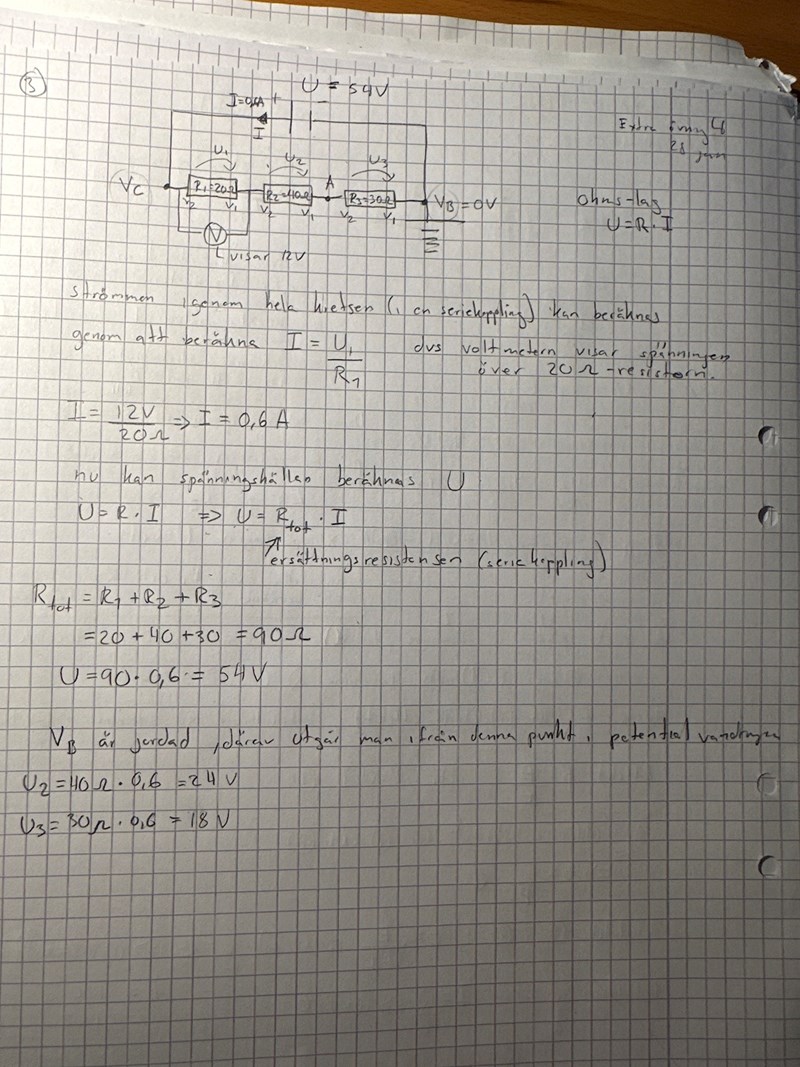 3
U = 54V
I=0,6A +
-
I
Extra övning 4
28 jan
U1
U2
U3
A
VC
R1=20Ω
R2=40Ω
R3=30Ω
VB=0V
V2 V1 V2 V1 V2 V1
V
visar 12V
ohms-lag
U=R·I
strömmen igenom hela kretsen (i en seriekoppling) kan beräknas
genom att beräkna I = U1/R1 dvs voltmetern visar spänningen
över 20Ω-resistorn.
I = 12V/20Ω => I = 0,6 A
nu kan spänningskällan beräknas U
U=R·I => U=Rtot·I
ersättningsresistensen (seriekoppling)
Rtot = R1 + R2 + R3
=20 + 40 +30 = 90Ω
U=90·0,6 = 54V
VB är jordad, därav utgår man ifrån denna punkt i potentialvandringen
U2=40Ω·0,6 =24 V
U3=30Ω·0,6 = 18 V